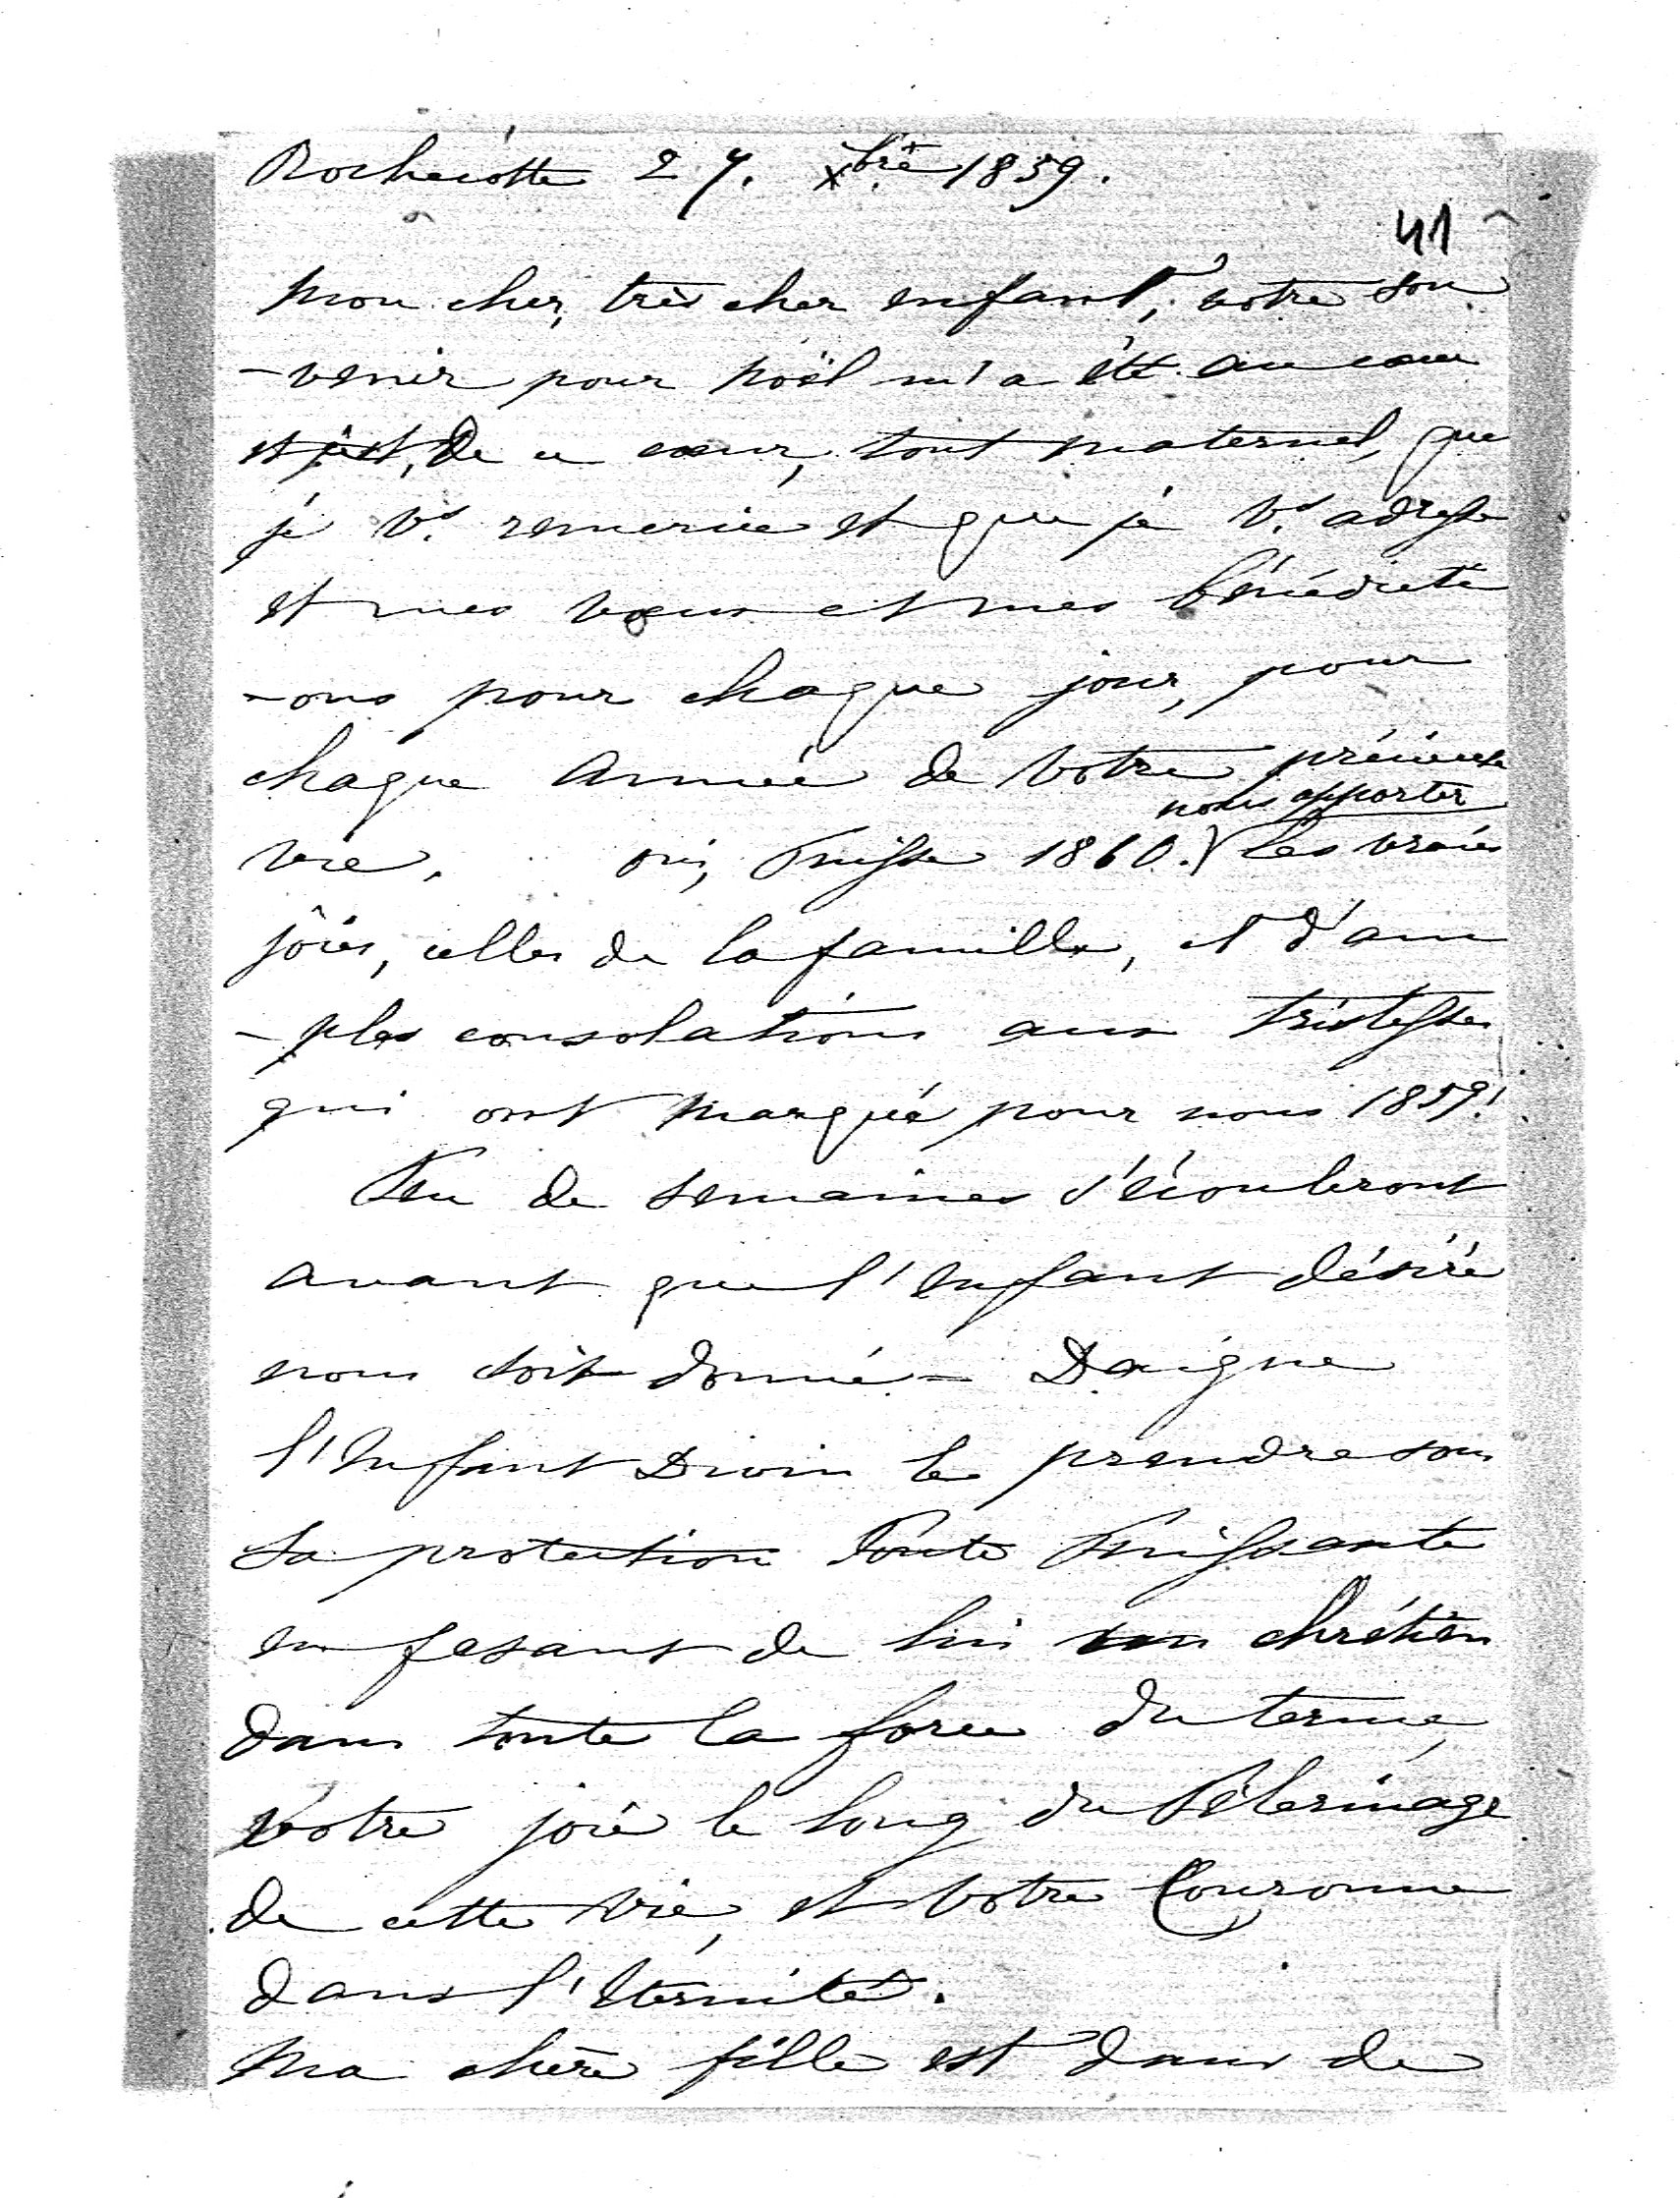 Rochecotte 27. Xbre 1859.
41
Mon cher, très cher enfant, votre sou
-venir pour Noël m'a été au cœur
et c'est, de ce cœur, tout maternel, que
je Vs. remercie et que je Vs. adresse
et mes vœux et mes bénédicti
-ons pour chaque jour, pour
chaque Année de Votre précieuse
nous apporter
vie. oui, Puisse 1860. les vraies
joies, celles de la famille, et d'am
-ples consolations aux tristesses
qui ont marqué pour nous 1859!
Peu de semaines s'écouleront
avant que l'Enfant désiré
nous soit donné - Daigne
l'Enfant Divin le prendre sous
Sa protection Toute Puissante
en fesant de lui un chrétien
dans toute la force du terme,
Votre joie le long du Pèlerinage
de cette Vie, et Votre Couronne
dans l'Eternité.
Ma chère fille est dans de